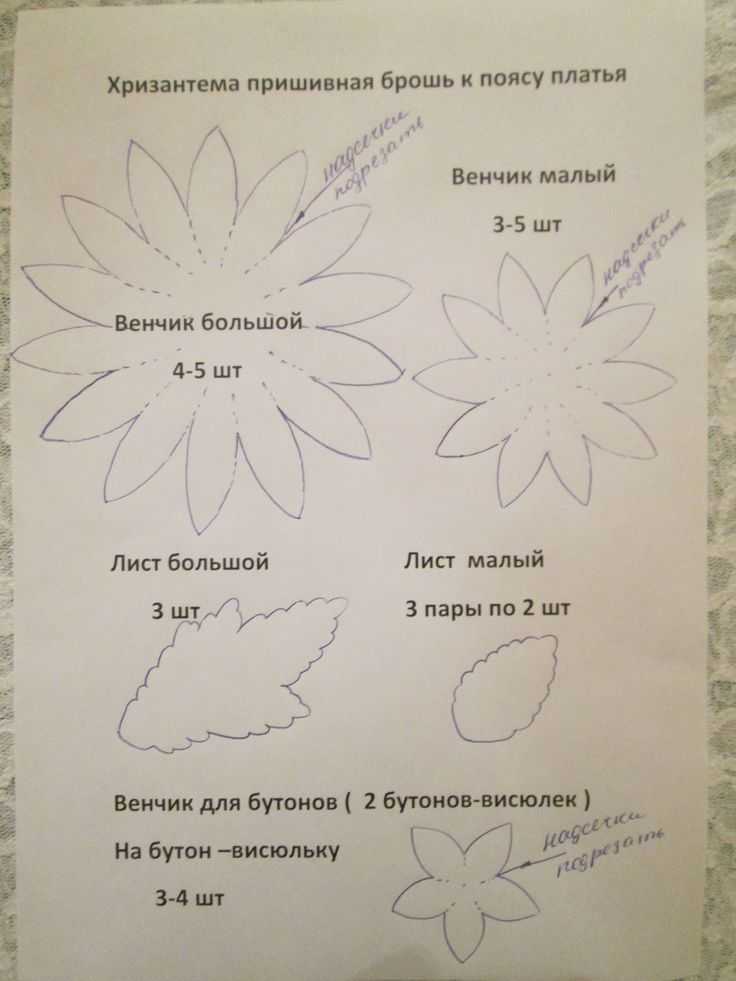 Хризантема пришивная брошь к поясу платья
надсечки
подрезать
Венчик малый
3-5 шт
надсечки
подрезать
Венчик большой
4-5 шт
Лист большой
3 шт
Лист малый
3 пары по 2 шт
Венчик для бутонов ( 2 бутонов-висюлек )
На бутон –висюльку
3-4 шт
надсечки
подрезать